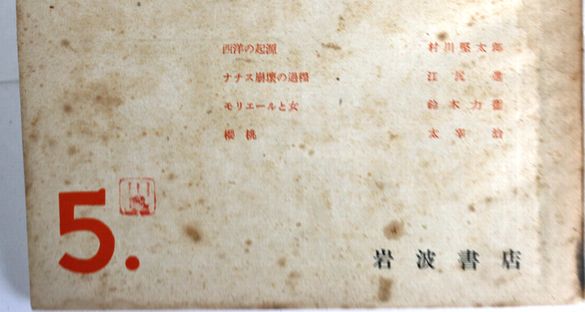 西洋の起源 村川堅太郎
ナチス崩壞の過程 江尻 進
モリエールと女 鈴木力衞
櫻桃 太宰 治
5.
岩波書店